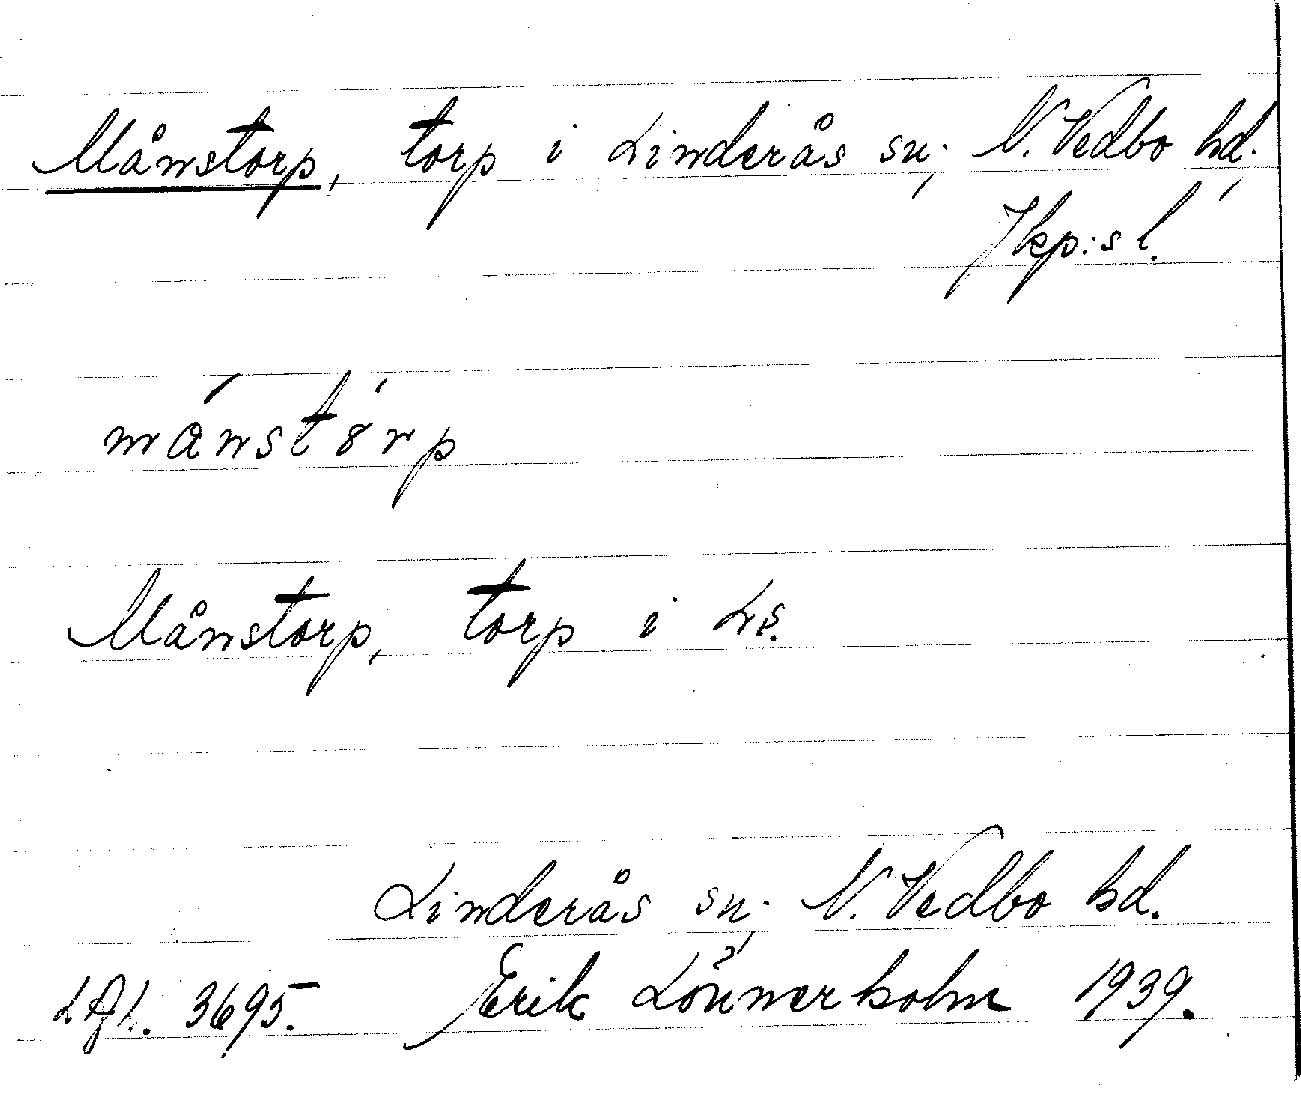 Månstorp, torp i Linderås sn; N. Vedbo hd.,
Jkp:s l.
mánstórp
Månstorp, torp i Ls.
Linderås sn; N. Vedbo hd.
3695. Erik Lönnerholm 1939.